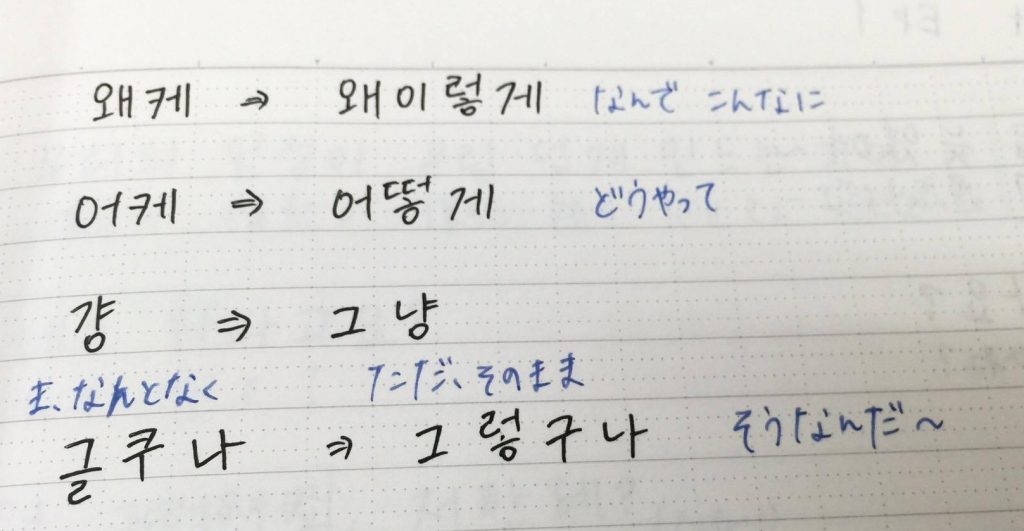 왜케 ⇒ 왜이렇게 なんで こんなに
어케 ⇒ 어떻게 どうやって
걍 ⇒ 그냥
ま、なんとなく ただ、そのまま
글쿠나 ⇒ 그렇구나 そうなんだ〜